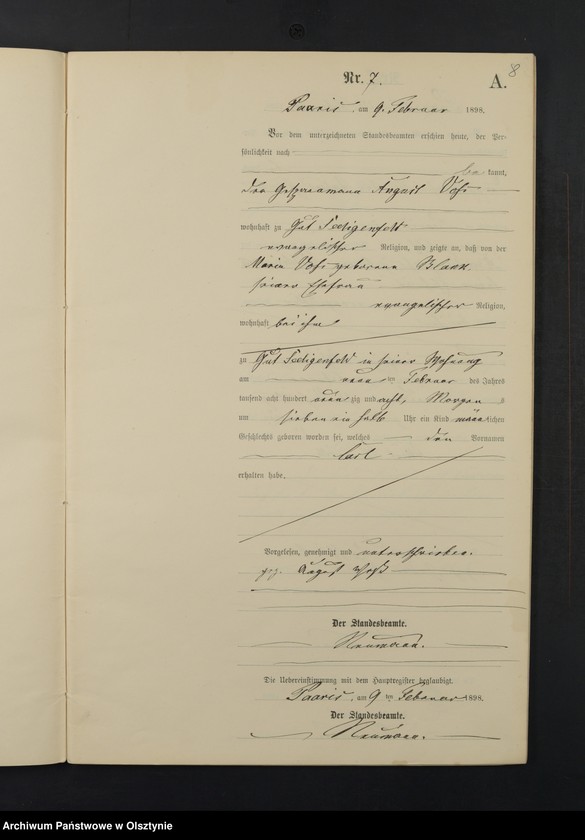 8
Nr. 7.
A.
Paaris, am 9. Februar 1898.
Vor dem unterzeichneten Standesbeamten erschien heute, der Per-
sönlichkeit nach
be kannt,
der Gespannmann August Voß
wohnhaft zu Gut Seeligenfeld
evangelischer Religion, und zeigte an, daß von der
Maria Voß geborenen Blank
seiner Ehefrau
evangelischer Religion,
wohnhaft bei ihm
zu Gut Seeligenfeld in seiner Wohnung
am ten Februar des Jahres
tausend acht hundert neun zig und acht, Morgens
um sieben ein halb Uhr ein Kind männlichen
Geschlechts geboren worden sei, welches den Vornamen
Carl
erhalten habe.
Vorgelesen, genehmigt und unterschrieben.
gez. August Voß
Der Standesbeamte.
Neumann.
Die Uebereinstimmung mit dem Hauptregister beglaubigt.
Paaris, am 9 ten Februar 1898.
Der Standesbeamte.
Neumann.
Archiwum Państwowe w Olsztynie